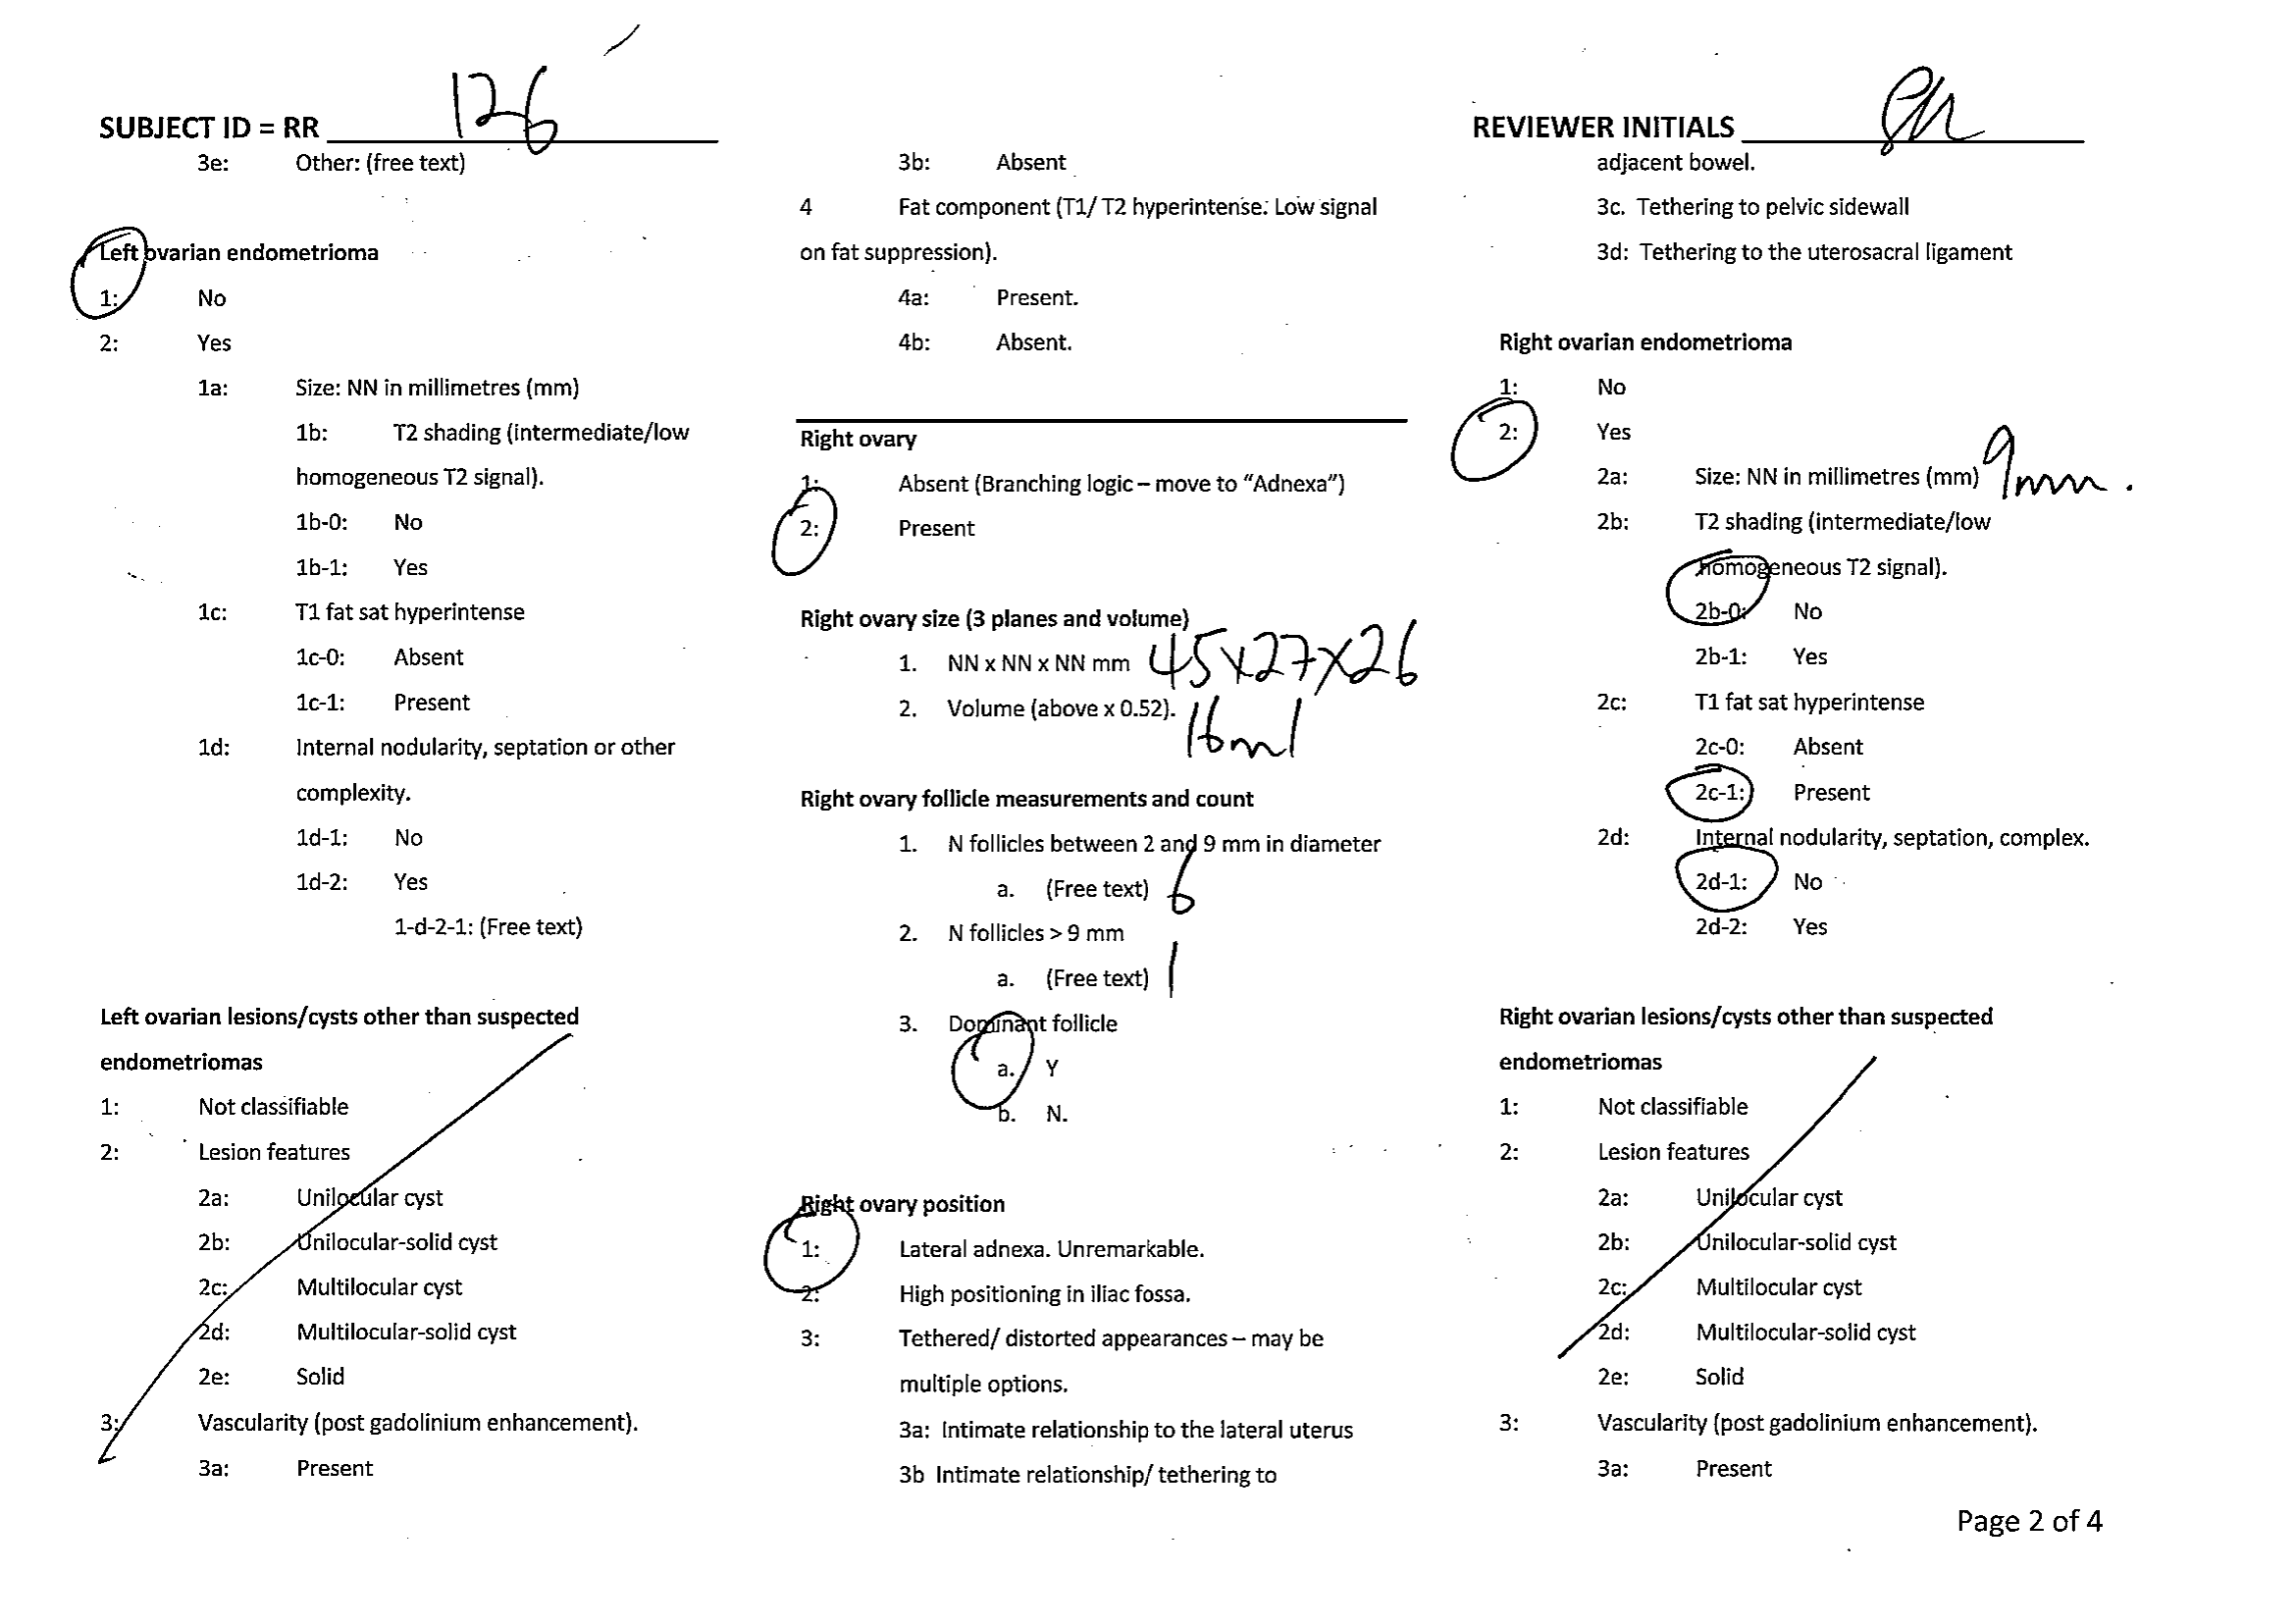 SUBJECT ID = RR 126
REVIEWER INITIALS
3e: Other: (free text)
Left ovarian endometrioma
1: No
2: Yes
1a: Size: NN in millimetres (mm)
1b: T2 shading (intermediate/low
homogeneous T2 signal).
1b-0: No
1b-1: Yes
1c: T1 fat sat hyperintense
1c-0: Absent
1c-1: Present
1d: Internal nodularity, septation or other
complexity.
1d-1: No
1d-2: Yes
1-d-2-1: (Free text)
Left ovarian lesions/cysts other than suspected
endometriomas
1: Not classifiable
2: Lesion features
2a: Unilocular cyst
2b: Unilocular-solid cyst
2c: Multilocular cyst
2d: Multilocular-solid cyst
2e: Solid
3: Vascularity (post gadolinium enhancement).
3a: Present
3b: Absent
4 Fat component (T1/ T2 hyperintense. Low signal
on fat suppression).
4a: Present.
4b: Absent.
Right ovary
1: Absent (Branching logic – move to “Adnexa”)
2: Present
Right ovary size (3 planes and volume)
1. NN x NN x NN mm 45x27x26
2. Volume (above x 0.52). 16ml
Right ovary follicle measurements and count
1. N follicles between 2 and 9 mm in diameter
a. (Free text) 6
2. N follicles > 9 mm
a. (Free text) 1
3. Dominant follicle
a. Y
b. N.
Right ovary position
1: Lateral adnexa. Unremarkable.
2: High positioning in iliac fossa.
3: Tethered/ distorted appearances – may be
multiple options.
3a: Intimate relationship to the lateral uterus
3b Intimate relationship/ tethering to
adjacent bowel.
3c. Tethering to pelvic sidewall
3d: Tethering to the uterosacral ligament
Right ovarian endometrioma
1: No
2: Yes
2a: Size: NN in millimetres (mm) 9mm.
2b: T2 shading (intermediate/low
homogeneous T2 signal).
2b-0: No
2b-1: Yes
2c: T1 fat sat hyperintense
2c-0: Absent
2c-1: Present
2d: Internal nodularity, septation, complex.
2d-1: No
2d-2: Yes
Right ovarian lesions/cysts other than suspected
endometriomas
1: Not classifiable
2: Lesion features
2a: Unilocular cyst
2b: Unilocular-solid cyst
2c: Multilocular cyst
2d: Multilocular-solid cyst
2e: Solid
3: Vascularity (post gadolinium enhancement).
3a: Present
Page 2 of 4